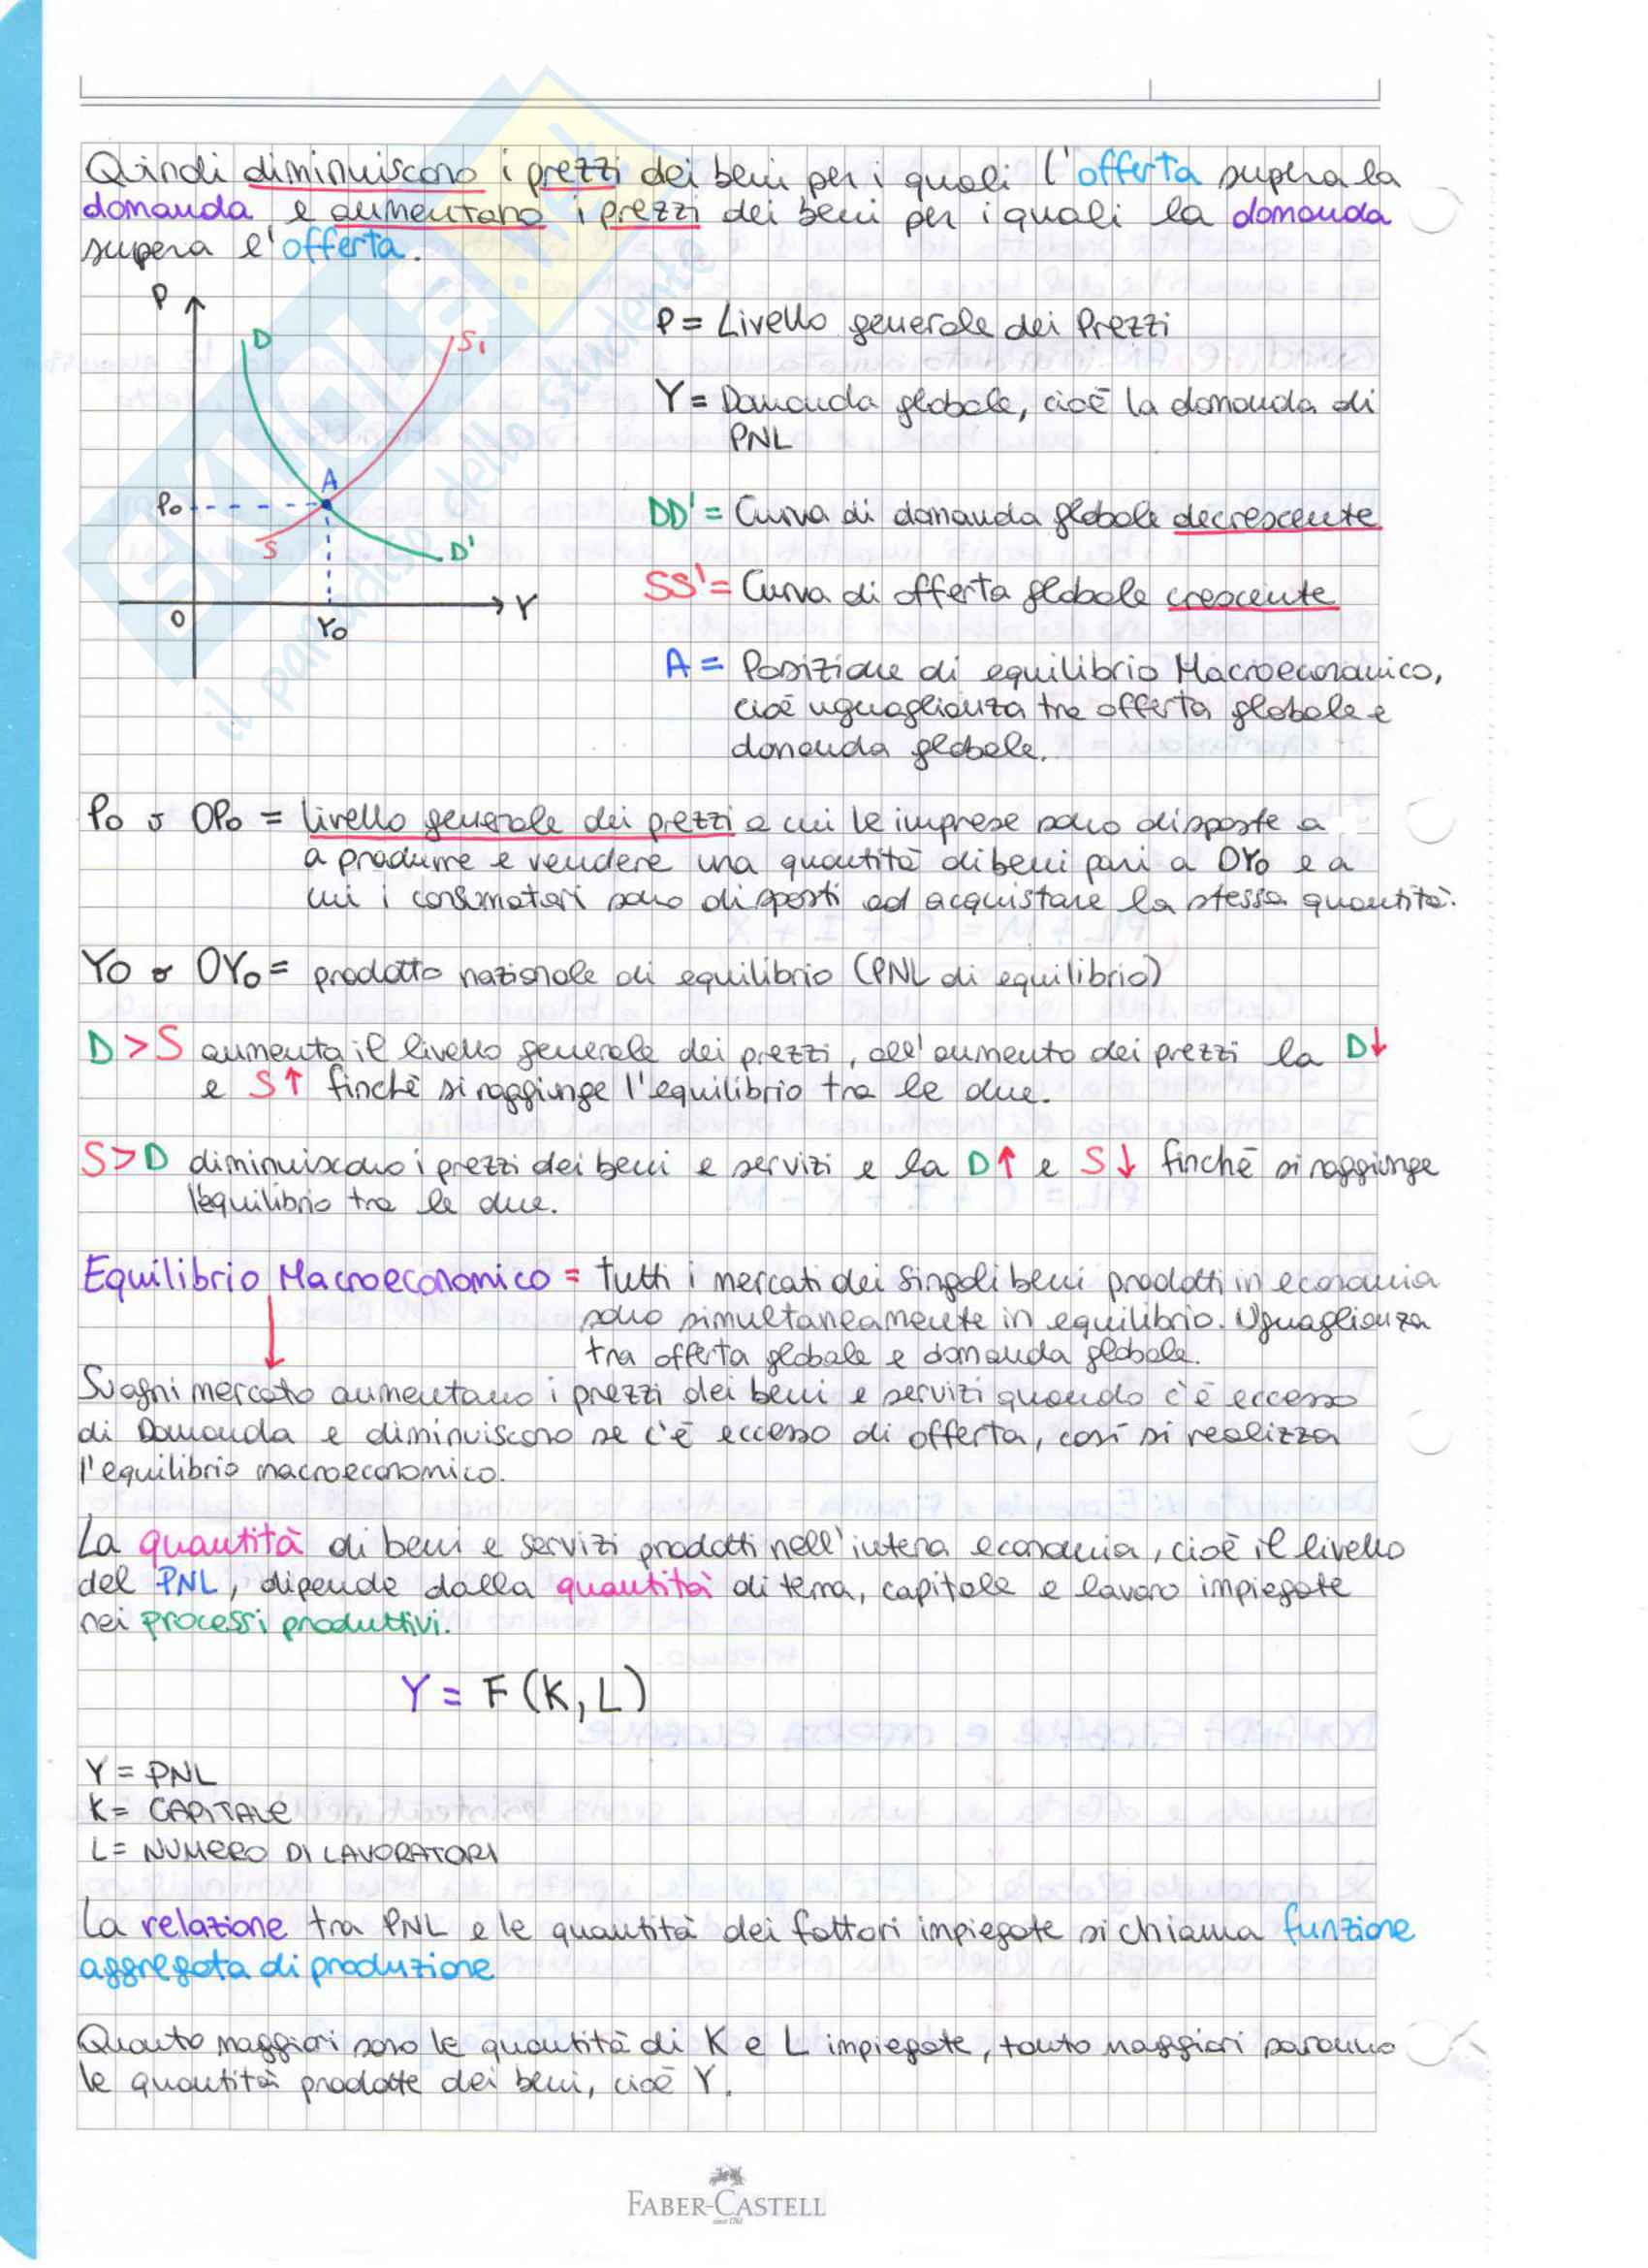 Quindi diminuiscono i prezzi dei beni per i quali l'offerta supera la
domanda e aumentano i prezzi dei beni per i quali la domanda
supera l'offerta.
P
D
S₁
A
P₀
S
D'
O
Y₀
Y
P = Livello generale dei Prezzi
Y = Domanda globale, cioè la domanda di
PNL
DD' = Curva di domanda globale decrescente
SS' = Curva di offerta globale crescente
A = Posizione di equilibrio Macroeconomico,
cioè uguaglianza tra offerta globale e
domanda globale.
P₀ o OP₀ = livello generale dei prezzi a cui le imprese sono disposte a
a produrre e vendere una quantità di beni pari a OY₀ e a
cui i consumatori sono disposti ad acquistare la stessa quantità.
Y₀ o OY₀ = prodotto nazionale di equilibrio (PNL di equilibrio)
D > S aumenta il livello generale dei prezzi, all'aumento dei prezzi la D↓
e S↑ finchè si raggiunge l'equilibrio tra le due.
S > D diminuiscono i prezzi dei beni e servizi e la D↑ e S↓ finchè si raggiunge
l'equilibrio tra le due.
Equilibrio Macroeconomico = tutti i mercati dei singoli beni prodotti in economia
sono simultaneamente in equilibrio. Uguaglianza
tra offerta globale e domanda globale.
Su ogni mercato aumentano i prezzi dei beni e servizi quando c'è eccesso
di Domanda e diminuiscono se c'è eccesso di offerta, così si realizza
l'equilibrio macroeconomico.
La quantità di beni e servizi prodotti nell'intera economia, cioè il livello
del PNL, dipende dalla quantità di terra, capitale e lavoro impiegate
nei processi produttivi.
Y = F (K, L)
Y = PNL
K = CAPITALE
L = NUMERO DI LAVORATORI
La relazione tra PNL e le quantità dei fattori impiegate si chiama funzione
aggregata di produzione
Quanto maggiori sono le quantità di K e L impiegate, tanto maggiori saranno
le quantità prodotte dei beni, cioè Y.
FABER-CASTELL
since 1761
SKUOLA.net
il paradiso dello studente